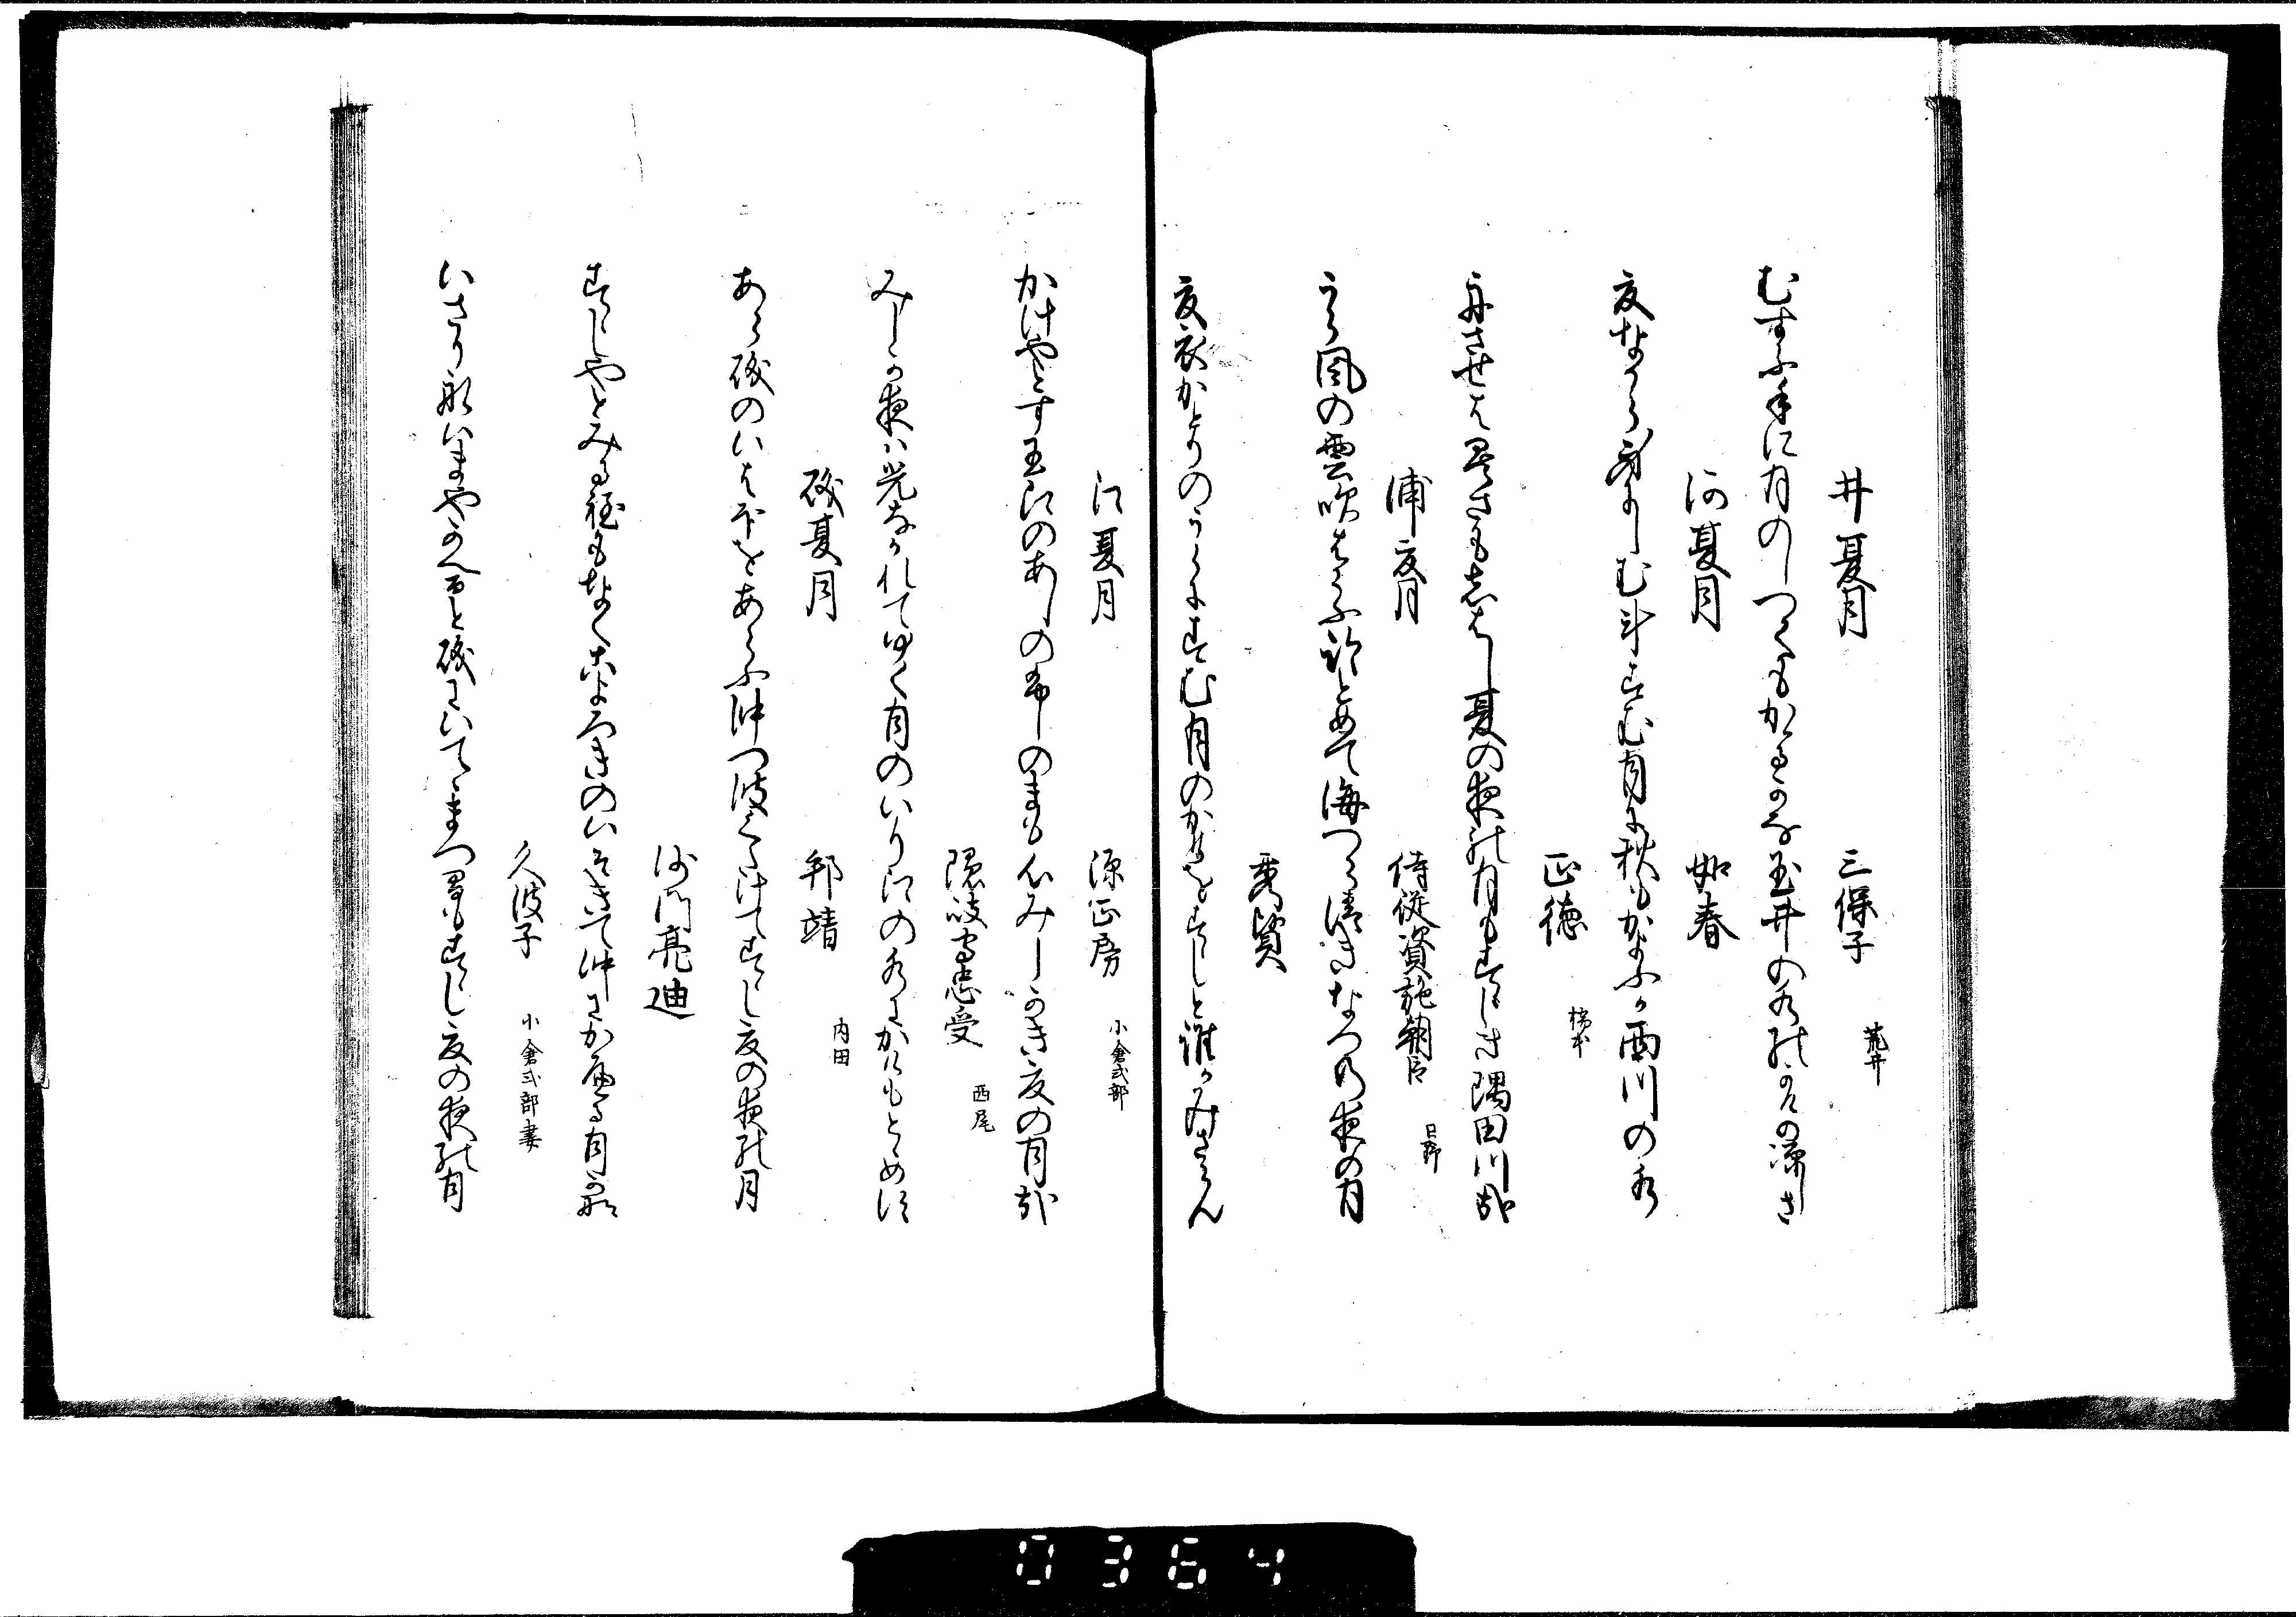 井夏月　三保子　荒井
むすふ手に月のしつくもかゝる玉井の水の涼しさ
河夏月　如春
夏なから身にしむ斗すむ月に秋もかよふか西川の水
正徳　橋本
舟させは暑さもしはし夏の夜の月もすゝしき隅田川哉
浦夏月　侍従資施朝臣　日野
うら風の雲吹はらふ跡とめて海つら清きなつの夜の月
秀賢
夏衣かとりのうらにすむ月のかけを涼しと誰かみさらん
江夏月　源正房　小倉式部
かけやとす玉江のあしの一ふしのまもみしかき夏の月哉
隠岐守忠受　西尾
みしか夜は光なかれてゆく月のいり江の水にかけもとゝめす
磯夏月　邦靖　内田
あら磯のいはほをあらふ沖つ波くたけてすゝし夏の夜の月
沙門亮迪
すゝしやとみる程もなくこよろきのいそきて沖にかたふく月
久波子　小倉式部妻
いさり舩いまやかへると磯にいてゝまつまもすゝし夏の夜の月
0364